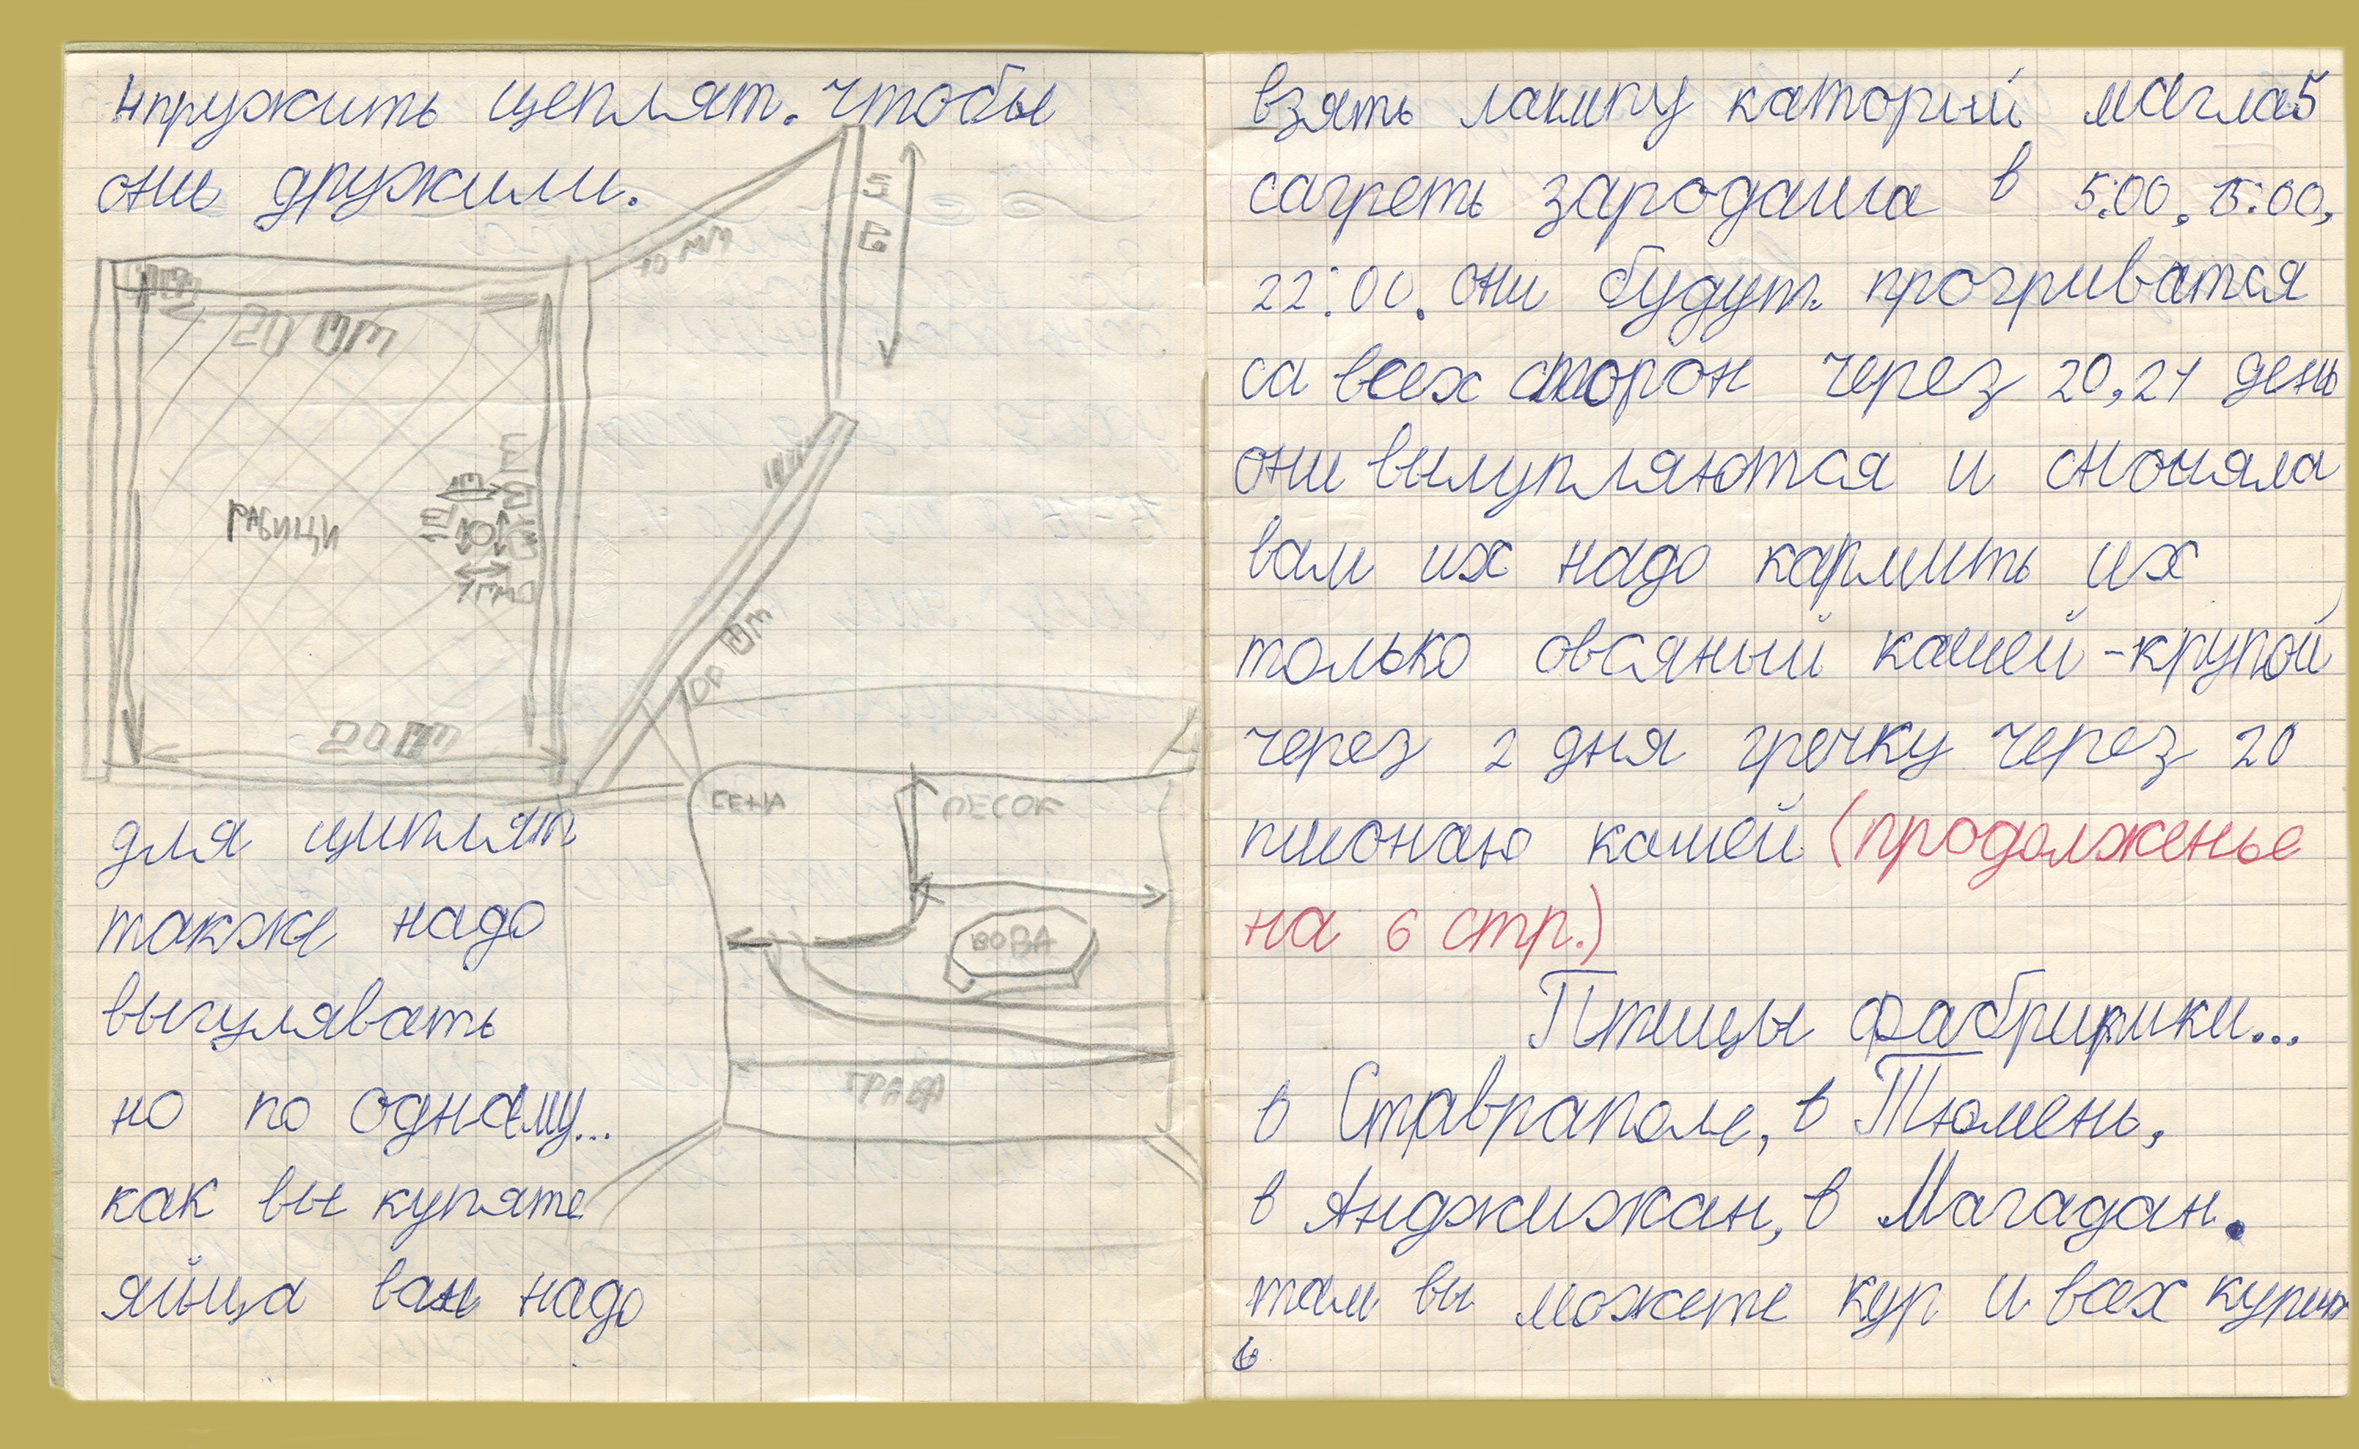 нпружить цеплят. чтобы
они дружили.
10 мм
20 мм
РАБИЦИ
СЕНА
ПЕСОК
ВОВА
ТРАВА
для циплят
также надо
выгулявать
но по одному...
как вы купяте
яйца вам надо
взять лампу каторий маглаб
сагреть зародаша в 5:00, 15:00,
22:00. они будут прогриватся
са всех сторон через 20,21 день
они вылупляются и сночяла
вам их надо кармить их
только овсяный кашей-крупой
через 2 дня гречку через 20
пшонаю кашей (продолженье
на 6 стр.)
Птицы фабририки...
в Ставраполе, в Тюмень,
в Анджижан, в Магадан.
там вы можете кур и всех купит
ь